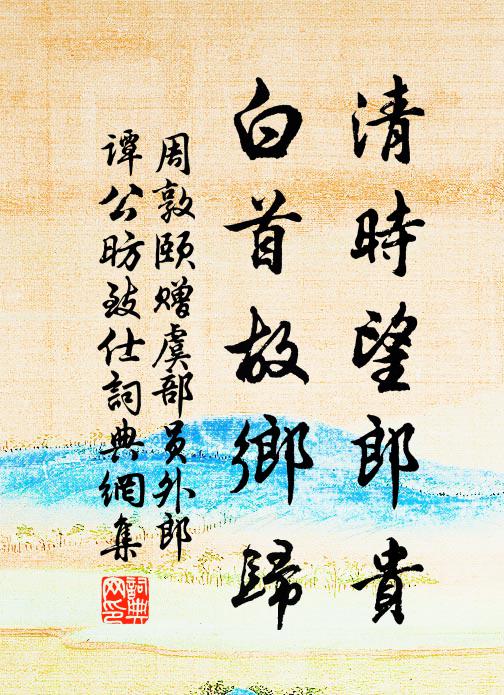 清時望郎貴
白首故鄉歸
周敦頤贈虞部员外郎
譚公昉致仕詞典網集
詞典网印